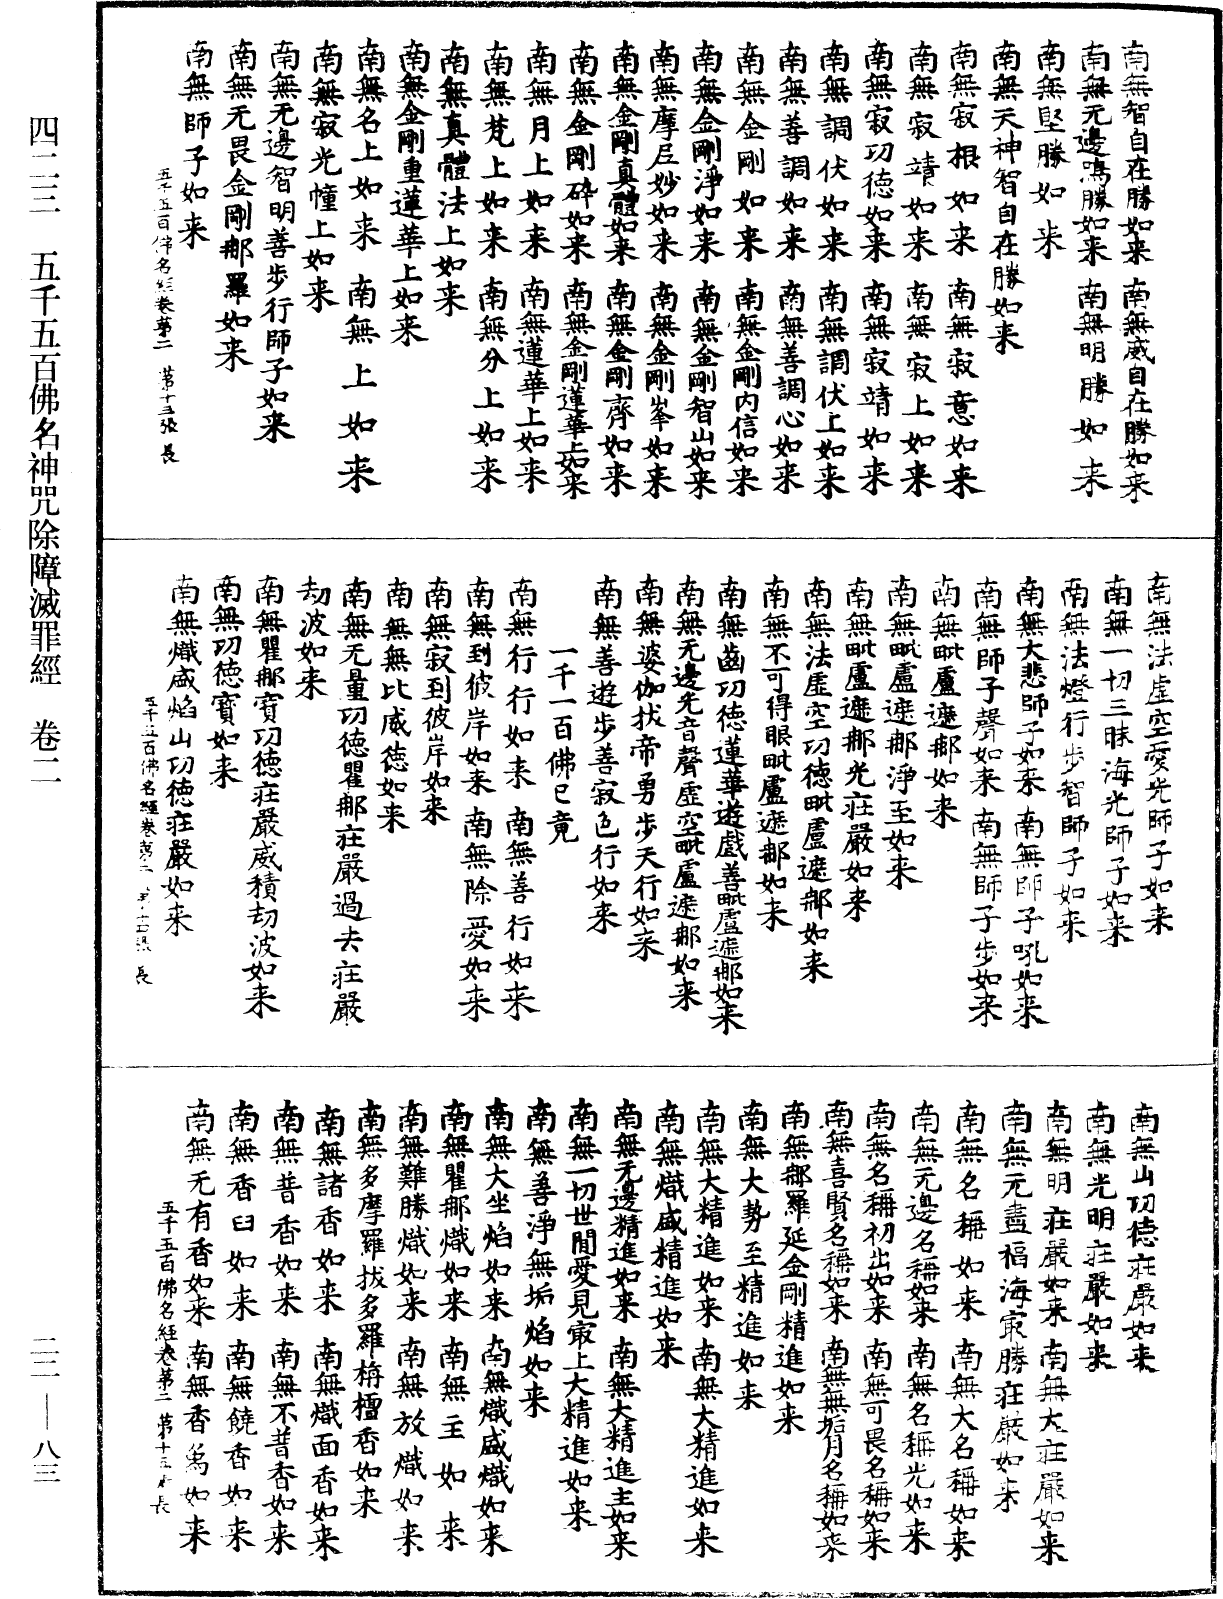 四二三　五千五百佛名神咒除障滅罪經　卷二
南無智自在勝如来　南無威自在勝如来
南無无邊鳴勝如来　南無明勝如来
南無堅勝如来
南無天神智自在勝如来
南無寂根如来　南無寂意如来
南無寂靖如来　南無寂上如来
南無寂功德如来　南無寂靖如来
南無調伏如来　南無調伏上如来
南無善調如来　南無善調心如来
南無金剛如来　南無金剛内信如来
南無金剛淨如来　南無金剛智山如来
南無摩尼妙如来　南無金剛峯如来
南無金剛真體如来　南無金剛齊如来
南無金剛碎如来　南無金剛蓮華上如来
南無月上如来　南無蓮華上如来
南無梵上如来　南無分上如来
南無真體法上如来
南無金剛重蓮華上如来
南無名上如来　南無上如来
南無寂光幢上如来
南無无邊智明善步行師子如来
南無无畏金剛那羅如来
南無師子如来
五千五百佛名經卷第二　第十三張　長
南無法虛空愛光師子如来
南無一切三昧海光師子如来
南無法燈行步智師子如来
南無大悲師子如来　南無師子吼如来
南無師子聲如来　南無師子步如来
南無毗盧遮那如来
南無毗盧遮那淨至如来
南無毗盧遮那光莊嚴如来
南無法虛空功德毗盧遮那如来
南無不可得眼毗盧遮那如来
南無齒功德蓮華遊戲善毗盧遮那如来
南無无邊光音聲虛空毗盧遮那如来
南無婆伽扶帝勇步天行如来
南無善遊步善寂色行如来
一千一百佛已竟
南無行行如来　南無善行如来
南無到彼岸如来　南無除愛如来
南無寂到彼岸如来
南無無比威德如来
南無无量功德瞿那莊嚴過去莊嚴
劫波如来
南無瞿那寶功德莊嚴威積劫波如来
南無功德寶如来
南無熾盛焰山功德莊嚴如来
五千五百佛名經卷第二　長
南無山功德莊嚴如来
南無光明莊嚴如来
南無明莊嚴如来　南無大莊嚴如来
南無无盡福海㝡勝莊嚴如来
南無名稱如来　南無大名稱如来
南無无邊名稱如来　南無名稱光如来
南無名稱初出如来　南無可畏名稱如来
南無喜賢名稱如来　南無無垢月名稱如来
南無那羅延金剛精進如来
南無大勢至精進如来
南無大精進如来　南無大精進如来
南無熾盛精進如来
南無无邊精進如来　南無大精進主如来
南無一切世間愛見㝡上大精進如来
南無善淨無垢焰如来
南無大坐焰如来　南無熾盛熾如来
南無瞿那熾如来　南無主如来
南無難勝熾如来　南無放熾如来
南無多摩羅拔多羅栴檀香如来
南無諸香如来　南無熾面香如来
南無普香如来　南無不普香如来
南無香臼如来　南無饒香如来
南無无有香如来　南無香為如来
五千五百佛名經卷第二　第十五　長
二二—八三